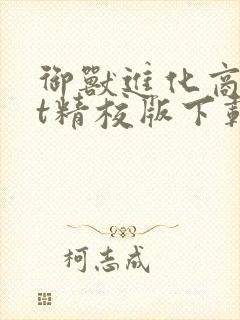 御獸進化商
t精校版下載
柯志成